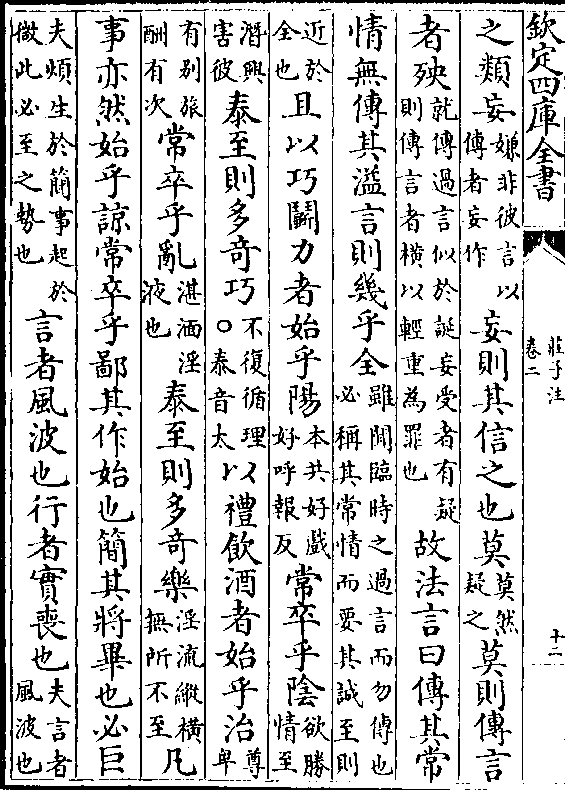 欽定四庫全書
莊子注
卷二
十二
之類妄嫌非彼言以傳者妄作妄則其信之也莫莫然疑之莫則傳言
者殃就傳過言似於誕妄受者有疑則傳言者橫以輕重為罪也故法言曰傳其常
情無傳其溢言則幾乎全雖聞臨時之過言而勿傳也必稱其常情而要其誠至則
近於全也且以巧鬭力者始乎陽本共好戲好呼報反常卒乎陰欲勝情至
潛興害彼泰至則多奇巧不復循理○泰音太以禮飲酒者始乎治尊卑
有别旅酬有次常卒乎亂湛湎淫液也泰至則多奇樂淫流縱橫無所不至凡
事亦然始乎諒常卒乎鄙其作始也簡其將畢也必巨
夫煩生於簡事起於微此必至之勢也言者風波也行者實喪也夫言者風波也